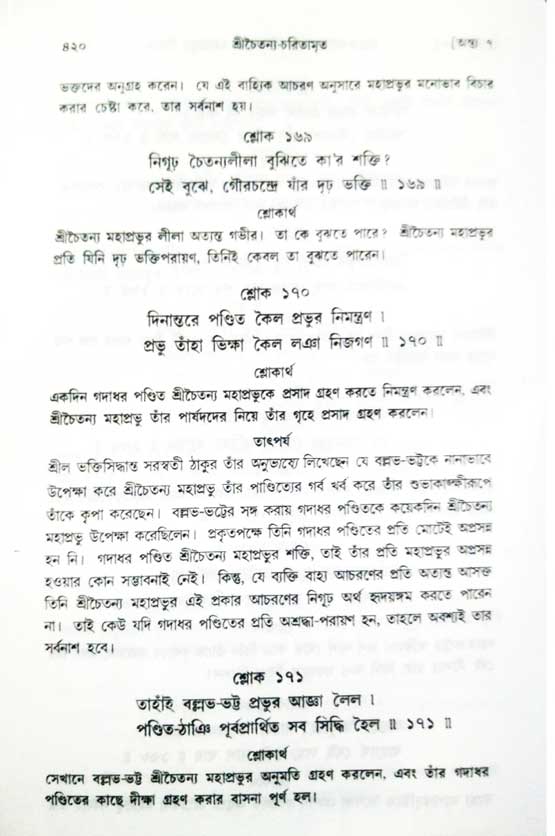 ৪২০ শ্রীচৈতন্য-চরিতামৃত [অন্ত্য ৭
ভক্তদের অনুগ্রহ করেন। যে এই বাহ্যিক আচরণ অনুসারে মহাপ্রভুর মনোভাব বিচার
করার চেষ্টা করে, তার সর্বনাশ হয়।
শ্লোক ১৬৯
নিগূঢ় চৈতন্যলীলা বুঝিতে কা'র শক্তি?
সেই বুঝে, গৌরচন্দ্রে যাঁর দৃঢ় ভক্তি ॥ ১৬৯ ॥
শ্লোকার্থ
শ্রীচৈতন্য মহাপ্রভুর লীলা অত্যন্ত গভীর। তা কে বুঝতে পারে? শ্রীচৈতন্য মহাপ্রভুর
প্রতি যিনি দৃঢ় ভক্তিপরায়ণ, তিনিই কেবল তা বুঝতে পারেন।
শ্লোক ১৭০
দিনান্তরে পণ্ডিত কৈল প্রভুর নিমন্ত্রণ।
প্রভু তাঁহা ভিক্ষা কৈল লঞা নিজগণ ॥ ১৭০ ॥
শ্লোকার্থ
একদিন গদাধর পণ্ডিত শ্রীচৈতন্য মহাপ্রভুকে প্রসাদ গ্রহণ করতে নিমন্ত্রণ করলেন, এবং
শ্রীচৈতন্য মহাপ্রভু তাঁর পার্ষদদের নিয়ে তাঁর গৃহে প্রসাদ গ্রহণ করলেন।
তাৎপর্য
শ্রীল ভক্তিসিদ্ধান্ত সরস্বতী ঠাকুর তাঁর অনুভাষ্যে লিখেছেন যে বল্লভ-ভট্টকে নানাভাবে
উপেক্ষা করে শ্রীচৈতন্য মহাপ্রভু তাঁর পাণ্ডিত্যের গর্ব খর্ব করে তাঁর শুভাকাঙ্ক্ষীরূপে
তাঁকে কৃপা করেছেন। বল্লভ-ভট্টের সঙ্গ করায় গদাধর পণ্ডিতকে কয়েকদিন শ্রীচৈতন্য
মহাপ্রভু উপেক্ষা করেছিলেন। প্রকৃতপক্ষে তিনি গদাধর পণ্ডিতের প্রতি মোটেই অপ্রসন্ন
হন নি। গদাধর পণ্ডিত শ্রীচৈতন্য মহাপ্রভুর শক্তি, তাই তাঁর প্রতি মহাপ্রভুর অপ্রসন্ন
হওয়ার কোন সম্ভাবনাই নেই। কিন্তু, যে ব্যক্তি বাহ্য আচরণের প্রতি অত্যন্ত আসক্ত
তিনি শ্রীচৈতন্য মহাপ্রভুর এই প্রকার আচরণের নিগূঢ় অর্থ হৃদয়ঙ্গম করতে পারেন
না। তাই কেউ যদি গদাধর পণ্ডিতের প্রতি অশ্রদ্ধা-পরায়ণ হন, তাহলে অবশ্যই তার
সর্বনাশ হবে।
শ্লোক ১৭১
তাহাঁই বল্লভ-ভট্ট প্রভুর আজ্ঞা লৈল।
পণ্ডিত-ঠাঞি পূর্বপ্রার্থিত সব সিদ্ধি হৈল ॥ ১৭১ ॥
শ্লোকার্থ
সেখানে বল্লভ-ভট্ট শ্রীচৈতন্য মহাপ্রভুর অনুমতি গ্রহণ করলেন, এবং তাঁর গদাধর
পণ্ডিতের কাছে দীক্ষা গ্রহণ করার বাসনা পূর্ণ হল।